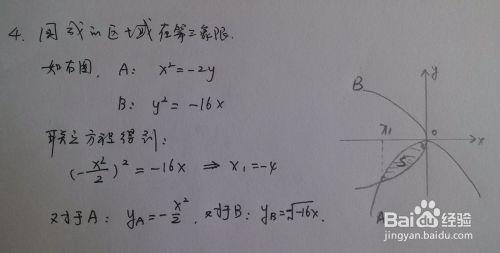 4. 围成的区域在第三象限.
如右图, A: x²=-2y
B: y² = -16x
联立方程得到:
(-x²/2)² = -16x ⇒ x₁=-4
对于A: y_A=-x²/2. 对于B: y_B=-√-16x.
B
y
x₁
o
x
S
A
Baidu经验
jingyan.baidu.com